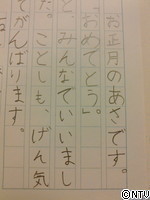 お正月のあさです。
「おめでとう。」
と、みんなでいいまし
た。ことしも、げん気
でがんばります。
©NTU